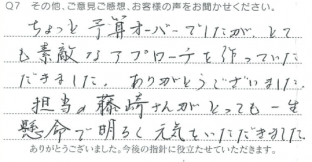 Q7 その他、ご意見ご感想、お客様の声をお聞かせください。
ちょっと予算オーバーでしたが、とて
も素敵なアプローチを作っていた
だきました。ありがとうございました。
担当の藤崎さんがとっても一生
懸命で明るく元気をいただきました。
ありがとうございました。今後の指針に役立たせていただきます。